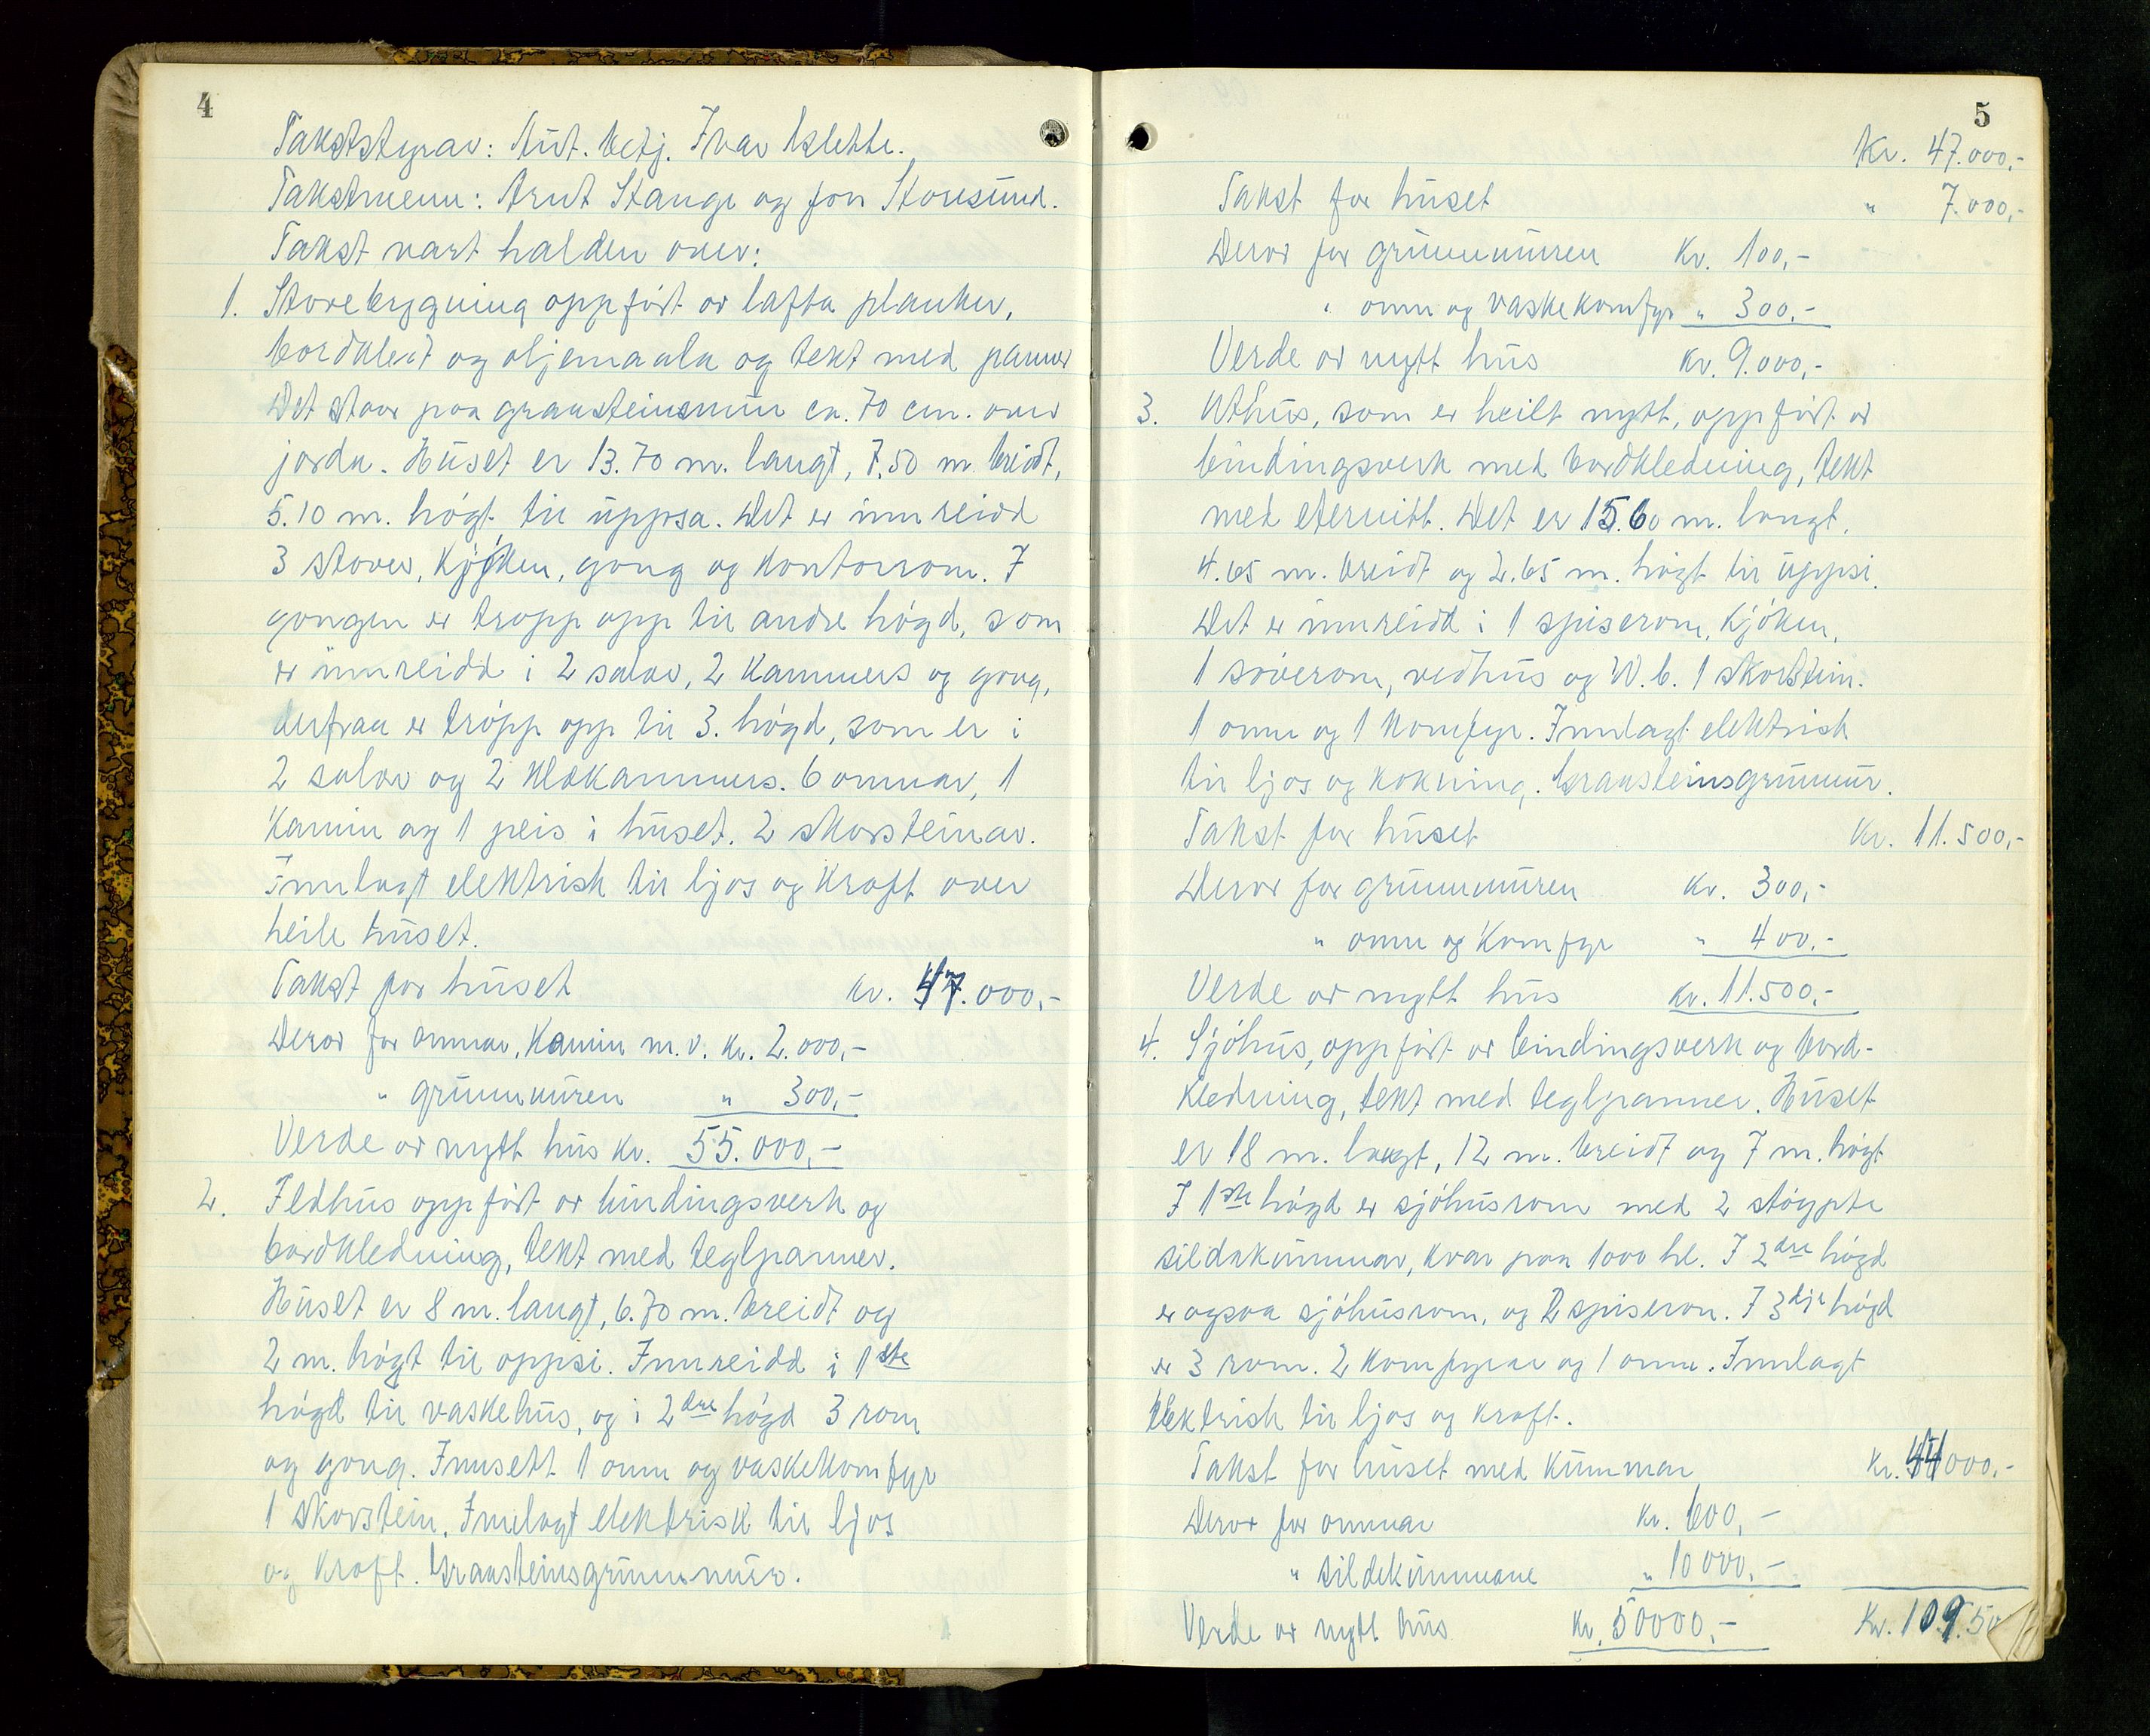 4
Takststyrar: Aut. betj. Ivar Uslette.
Takstmenn: Arnt Stange og Jon Storesund.
Takst vart halden over:
1. Storebygning oppført av lafta planker,
bordkledt og oljemaala og tekt med panner
Det staar paa graasteinsmur ca. 70 cm. over
jorda. Huset er 13.70 m. langt, 7.50 m. breidt,
5.10 m. høgt til uppsa. Det er innreidd
3 stover, kjøken, gong og kontorrom. I
gongen er tropp opp til andre høgd, som
er innreidd i 2 salar, 2 kammers og gong,
derfraa er tropp opp til 3. høgd, som er i
2 salar og 2 klækammers. 6 omnar, 1
kamin og 1 peis i huset. 2 skorsteinar.
Innlagt elektrisk til ljos og kraft over
heile huset.
Takst for huset kr. 47.000,-
Derav for omnar, kamin m.v. kr. 2.000,-
" grunnmuren " 300,-
Verde av nytt hus kr. 55.000,-
2. Eldhus oppført av bindingsverk og
bordkledning, tekt med teglpanner.
Huset er 8 m. langt, 6.70 m. breidt og
2 m. høgt til oppsi. Innreidd i 1ste
høgd til vaskehus, og i 2dre høgd 3 rom
og gong. Innsett 1 omn og vaskekomfyr
1 skorstein. Innlagt elektrisk til ljos
og kraft. Graasteinsgrunnmur.
5
Kr. 47.000,-
Takst for huset " 7.000,-
Derav for grunnmuren kr. 100,-
" omn og vaskekomfyr " 300,-
Verde av nytt hus kr. 9.000,-
3. Uthus, som er heilt nytt, oppført av
bindingsverk med bordkledning, tekt
med eternitt. Det er 15.60 m. langt,
4.65 m. breidt og 2.65 m. høgt til uppsi.
Det er innreidd i 1 spiserom, kjøken,
1 soverom, vedhus og W.C. 1 skorstein.
1 omn og 1 komfyr. Innlagt elektrisk
til ljos og kokning. Graasteinsgrunnmur.
Takst for huset Kr. 11.500,-
Derav for grunnmuren kr. 300,-
" omn og komfyr " 400,-
Verde av nytt hus kr. 11.500,-
4. Sjøhus, oppført av bindingsverk og bord-
kledning, tekt med teglpanner. Huset
er 18 m. langt, 12 m. breidt og 7 m. høgt
I 1ste høgd er sjøhusrom med 2 støypte
sildakummar, kvar paa 1000 hl. I 2dre høgd
er ogsaa sjøhusrom, og 2 spiserom. I 3dje høgd
er 3 rom. 2 komfyrar og 1 omn. Innlagt
elektrisk til ljos og kraft.
Takst for huset med kummar kr. 44000,-
Derav for omnar kr. 600,-
" sildekummane " 10000,-
Verde av nytt hus kr. 50000,- Kr. 109.50